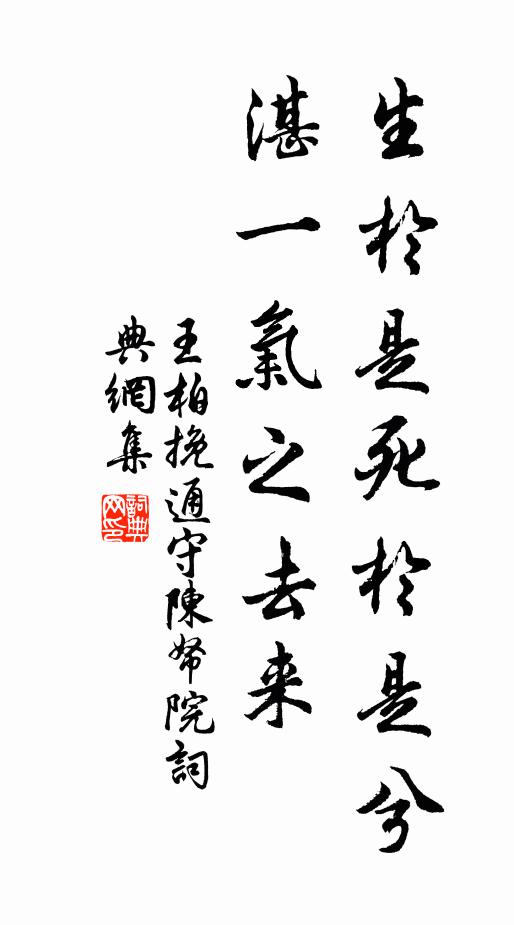 生於是死於是兮
湛一氣之去来
王柏挽通守陳帑院詞
典網集
詞典
网印